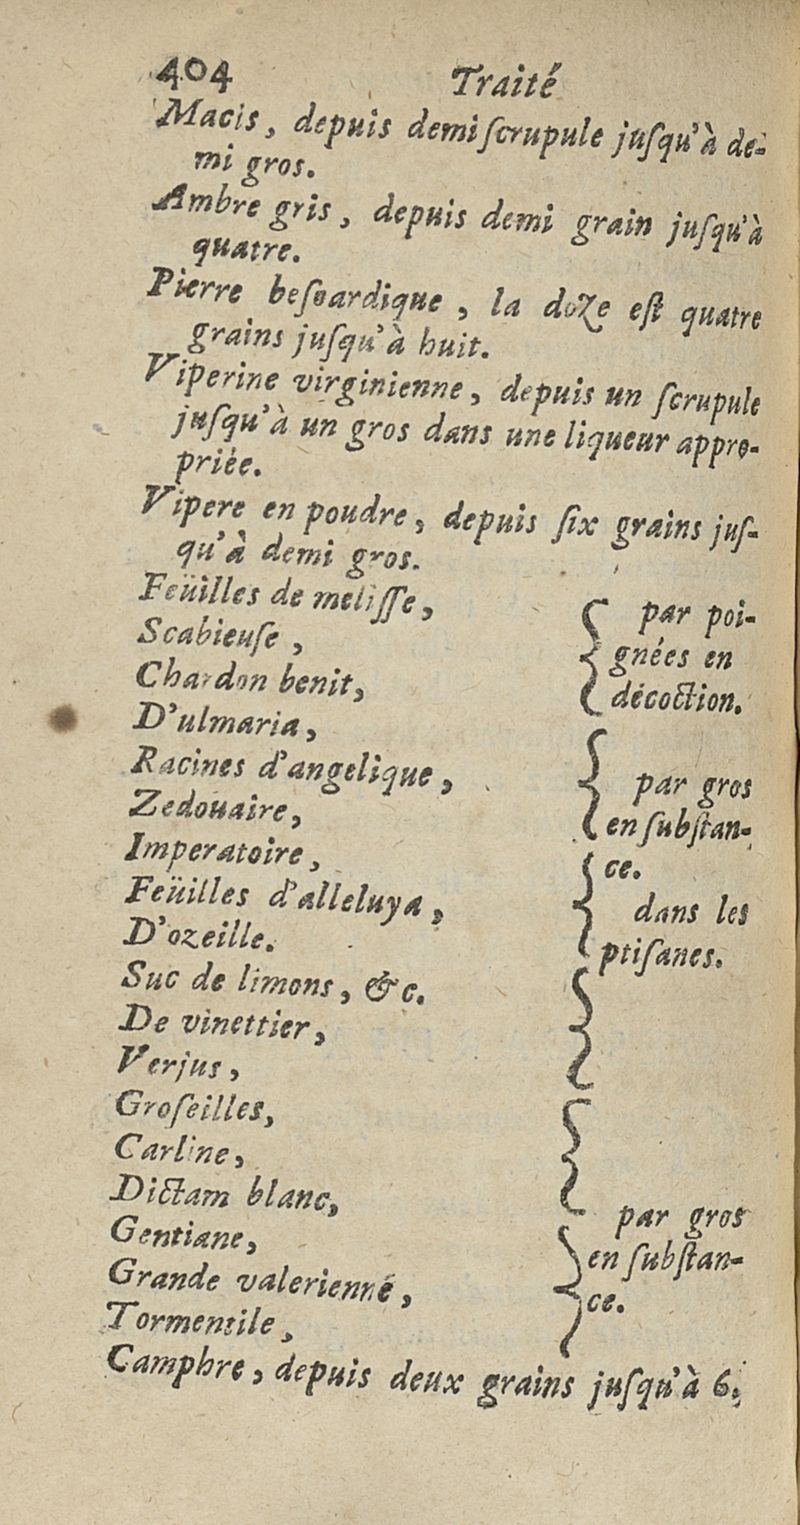 404 Traité
Macis, depuis demi ſcrupule juſqu'à de-
mi gros.
Ambre gris, depuis demi grain juſqu'à
quatre.
Pierre beſoardique, la doze eſt quatre
grains juſqu'à huit.
Viperine virginienne, depuis un ſcrupule
juſqu'à un gros dans une liqueur appro-
priée.
Vipere en poudre, depuis ſix grains juſ-
qu'à demi gros.
Feüilles de meliſſe,
Scabieuſe,
Chardon benit,
D'ulmaria,
par poi-
gnées en
décoction.
Racines d'angelique,
Zedouaire,
Imperatoire,
par gros
en ſubſtan-
ce.
Feüilles d'alleluya,
D'ozeille.
Suc de limons, &c.
De vinettier,
Verjus,
Groſeilles,
dans les
ptiſanes.
Carline,
Dictam blanc,
Gentiane,
Grande valerienne,
Tormentile,
par gros
en ſubſtan-
ce.
Camphre, depuis deux grains juſqu'à 6.